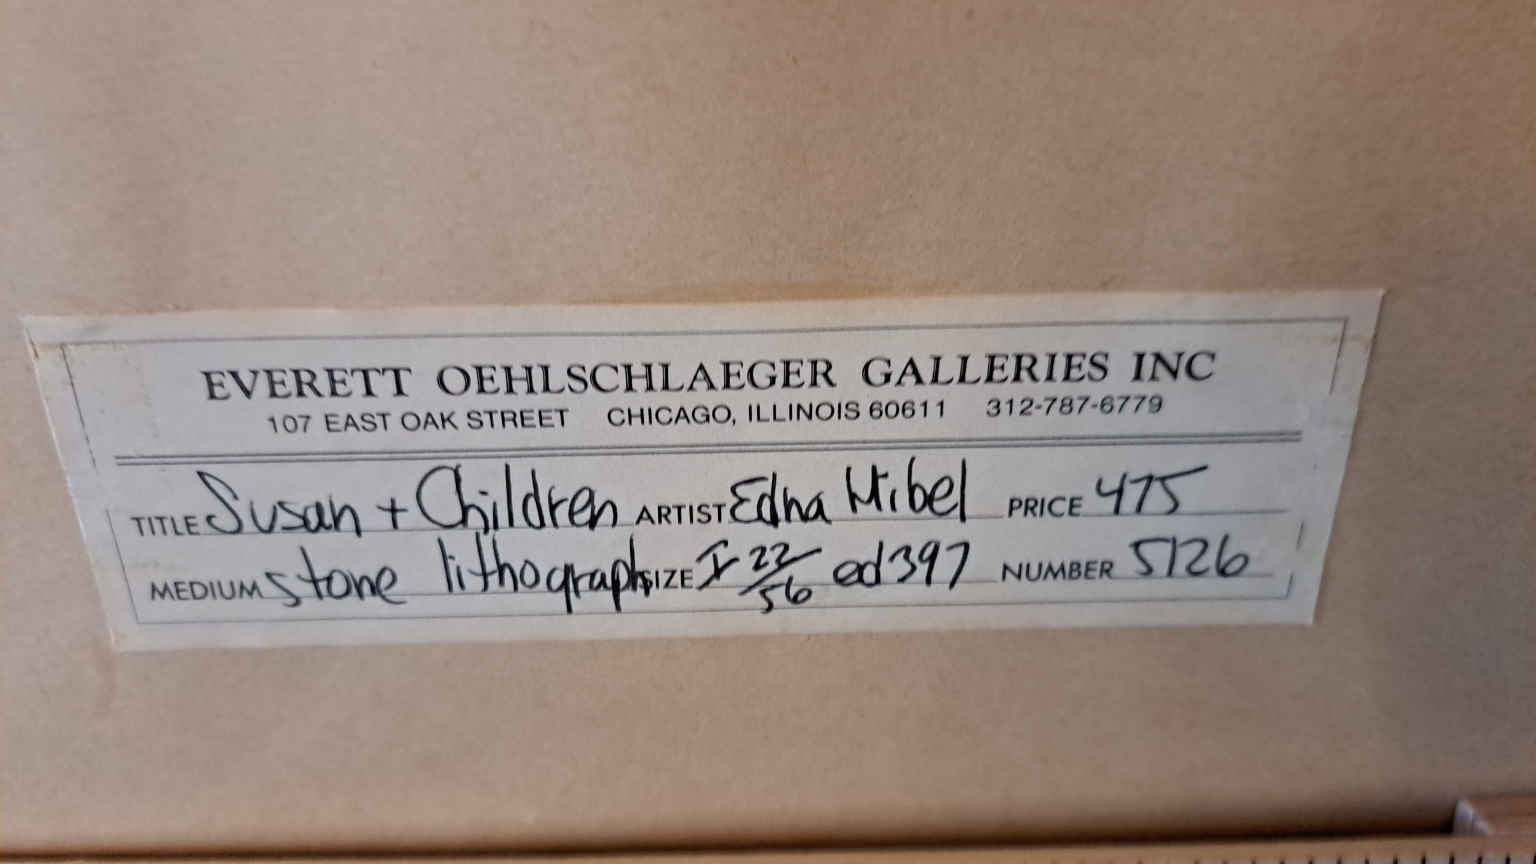 EVERETT OEHLSCHLAEGER GALLERIES INC
107 EAST OAK STREET CHICAGO, ILLINOIS 60611 312-787-6779
TITLE Susan + Children ARTIST Edna Hibel PRICE 475
MEDIUM stone lithograph SIZE I 22/56 ed 397 NUMBER 5126